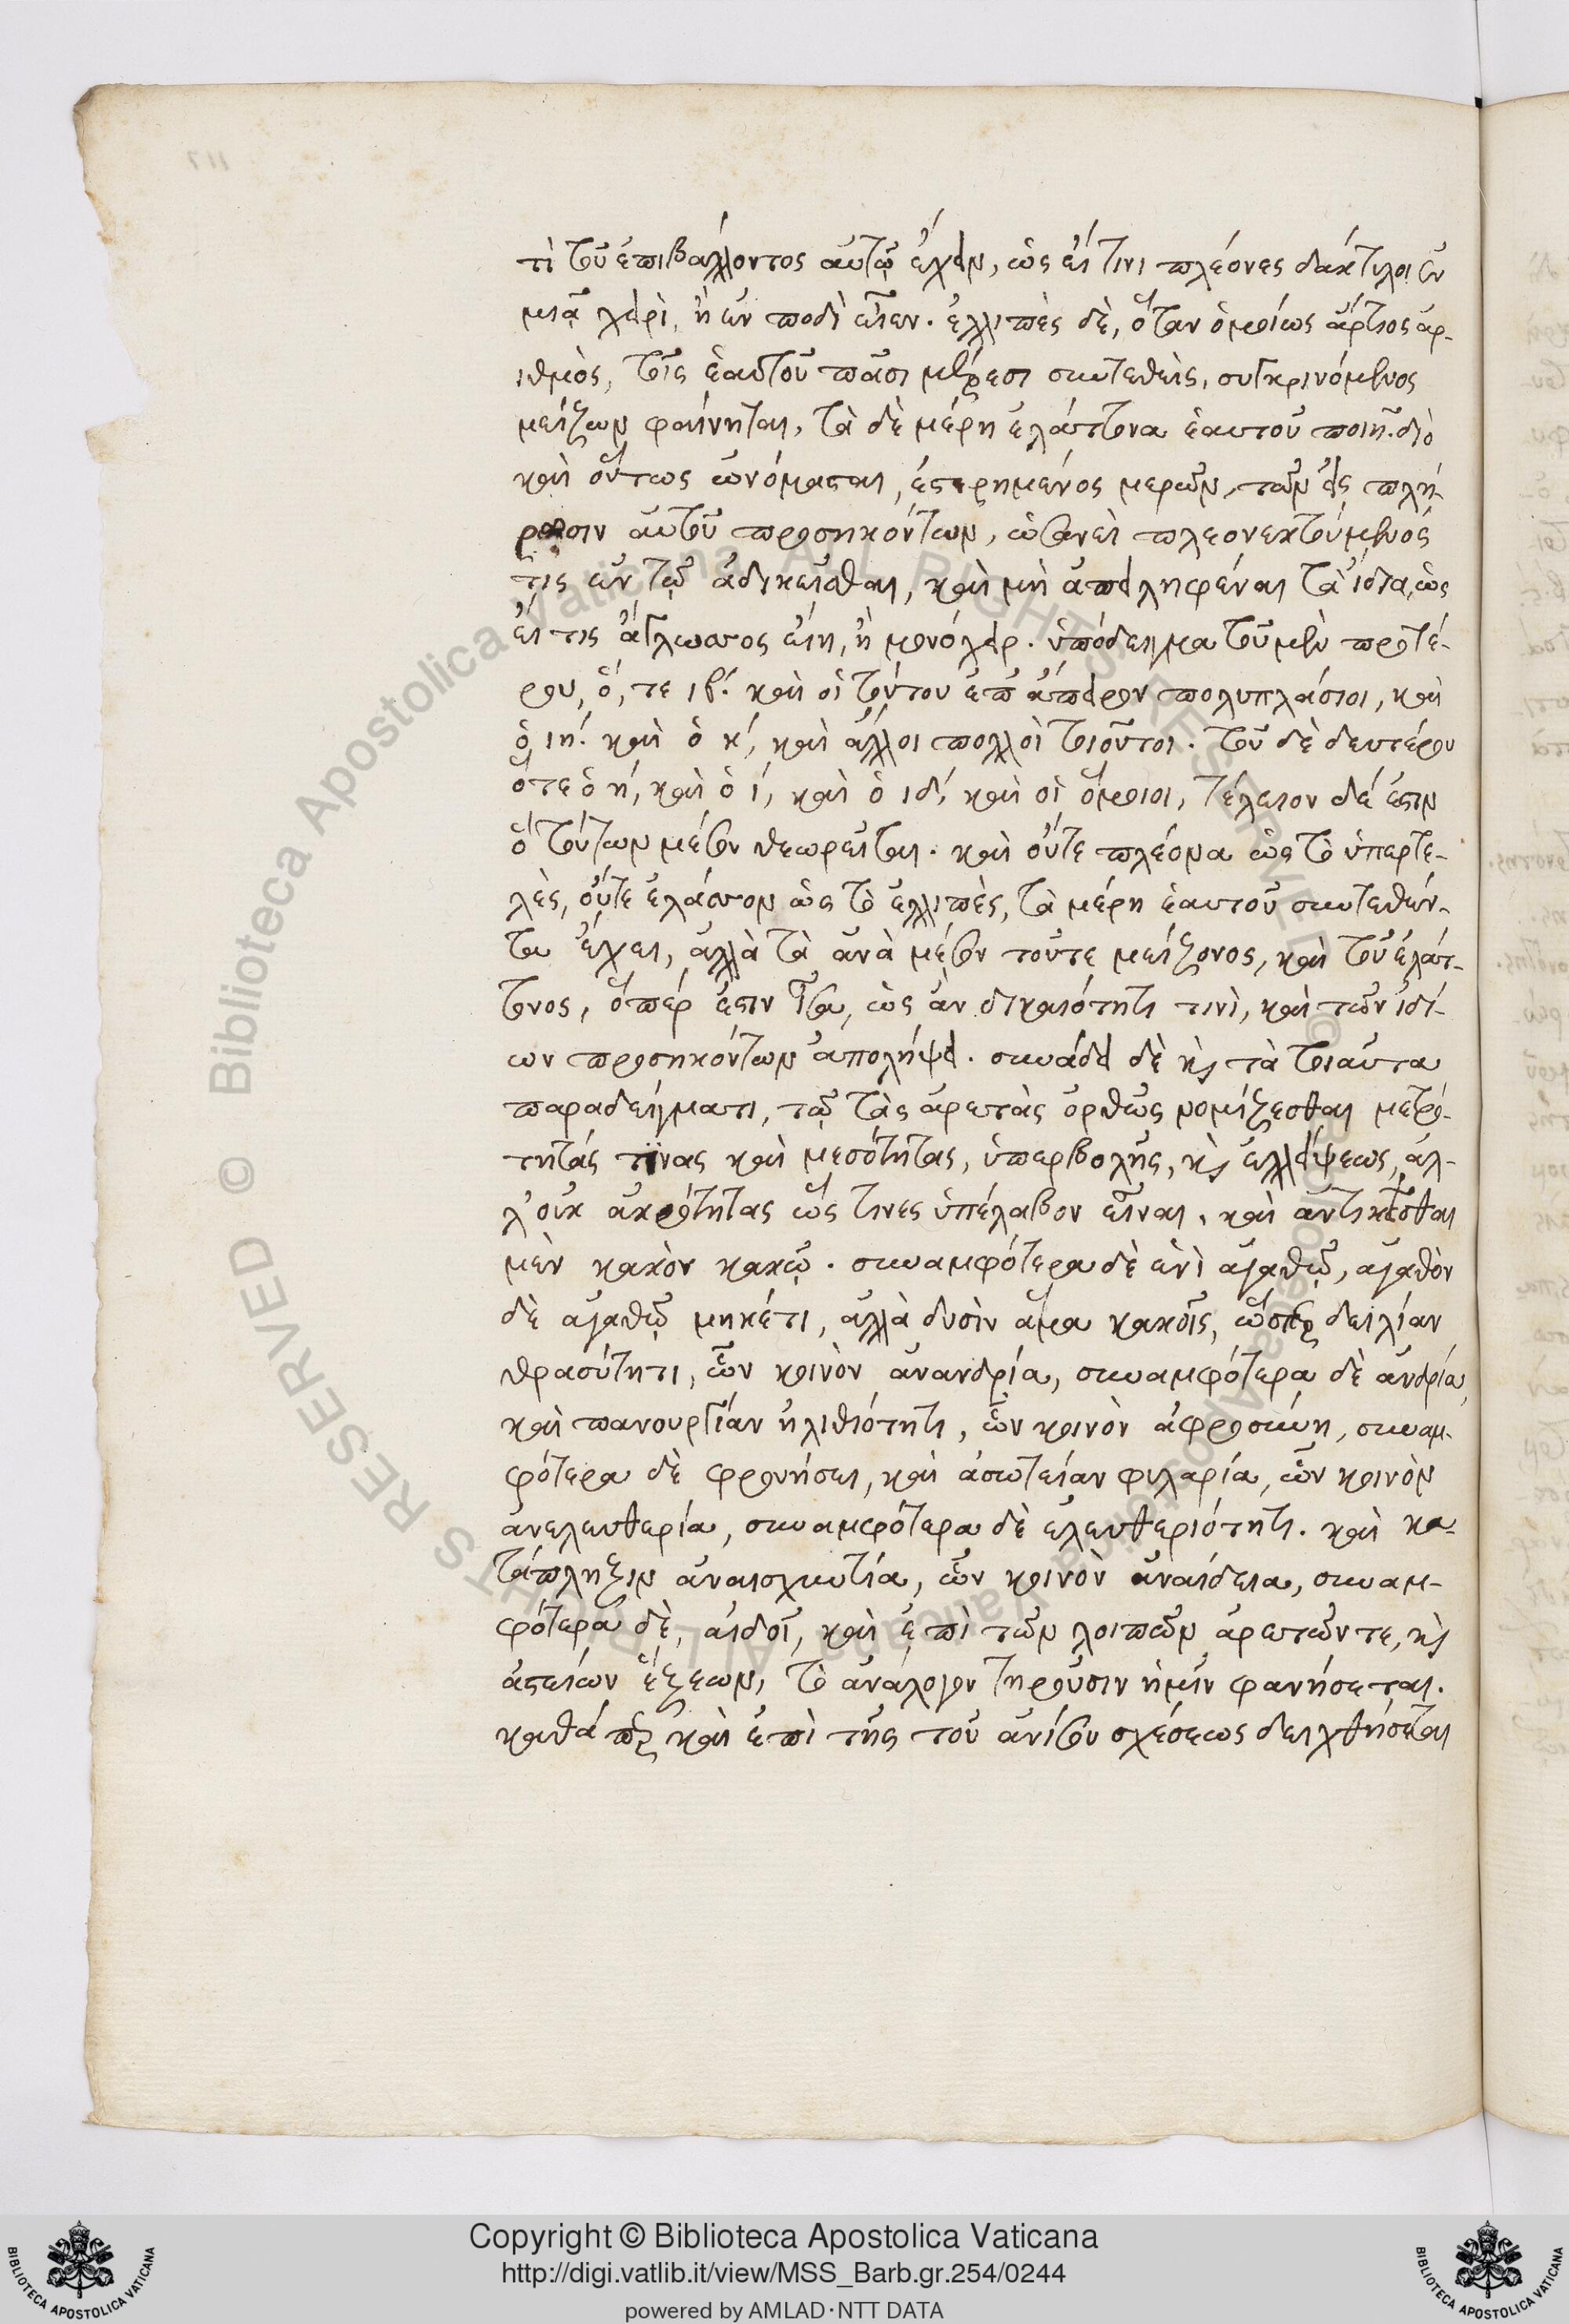 τὶ τοῦ ἐπιβάλλοντος αὐτῷ ἔχειν, ὡς εἴ τινι πλέονες δάκτυλοι ἐν
μιᾷ χειρὶ, ἢ ἐν ποδὶ εἶεν. ἐλλιπὲς δὲ, ὅταν ὁμοίως ἄρτιος ἀρ-
ιθμὸς, τοῖς ἑαυτοῦ πᾶσι μέρεσι συντεθεὶς, συγκρινόμενος
μείζων φαίνηται, τὰ δὲ μέρη ἐλάττονα ἑαυτοῦ ποιῇ. διὸ
καὶ οὕτως ὠνόμασται, ἐστερημένος μερῶν, τῶν εἰς πλή-
ρωσιν αὐτοῦ προσηκόντων, ὡσανεὶ πλεονεκτούμενός
τις ἐν τῷ ἀδικεῖσθαι, καὶ μὴ ἀπειληφέναι τὰ ἴδια, ὡς
εἴ τις ἄγλωσσος εἴη, ἢ μονόχειρ. ὑπόδειγμα τοῦ μὲν προτέ-
ρου, ὅ, τε ιβ΄. καὶ οἱ τούτου ἐπ' ἄπειρον πολυπλάσιοι, καὶ
ὁ ιη΄. καὶ ὁ κ΄, καὶ ἄλλοι πολλοὶ τοιοῦτοι. τοῦ δὲ δευτέρου
ὅτε ὁ η΄, καὶ ὁ ι΄, καὶ ὁ ιδ΄, καὶ οἱ ὅμοιοι, τέλειον δέ ἐστιν
ὃ τούτων μέσον θεωρεῖται. καὶ οὔτε πλέονα ὡς τὸ ὑπερτε-
λὲς, οὔτε ἐλάσσον ὡς τὸ ἐλλιπὲς, τὰ μέρη ἑαυτοῦ συντεθέν-
τα ἔχει, ἀλλὰ τὰ ἀνὰ μέσον τοῦτε μείζονος, καὶ τοῦ ἐλάτ-
τονος, ὅπέρ ἐστιν ἴσα, ὡς ἂν δικαιότητι τινὶ, καὶ τῶν ἰδί-
ων προσηκόντων ἀπολήψει. συνάδει δὲ κὶ τὰ τοιαῦτα
παραδείγματι, τῷ τὰς ἀρετὰς ὀρθῶς νομίζεσθαι μετριό-
τητάς τινας καὶ μεσότητας, ὑπερβολῆς, κὶ ἐλλείψεως, ἀλ-
λ' οὐκ ἀκρότητας ὥς τινες ὑπέλαβον εἶναι, καὶ ἀντικεῖσθαι
μὲν κακὸν κακῷ. συναμφότερα δὲ ἑνὶ ἀγαθῷ, ἀγαθὸν
δὲ ἀγαθῷ μηκέτι, ἀλλὰ δυσὶν ἅμα κακοῖς, ὥσπερ δειλίαν
θρασύτητι, ὧν κοινὸν ἀνανδρία, συναμφότερα δὲ ἀνδρία,
καὶ πανουργίαν ἠλιθιότητι, ὧν κοινὸν ἀφροσύνη, συναμ-
φότερα δὲ φρονήσει, καὶ ἀσωτείαν φιλαρία, ὧν κοινὸν
ἀνελευθερία, συναμφότερα δὲ ἐλευθεριότητι. καὶ κα-
τάπληξιν ἀναισχυντία, ὧν κοινὸν ἀναίδεια, συναμ-
φότερα δὲ, αἰδοῖ, καὶ ἐπὶ τῶν λοιπῶν ἀρετῶν τε, κὶ
ἀστείων ἕξεων, τὸ ἀνάλογον τηροῦσιν ἡμῖν φανήσεται.
καθάπερ καὶ ἐπὶ τῆς τοῦ ἀνίσου σχέσεως δειχθήσεται
© Biblioteca Apostolica Vaticana ALL RIGHTS RESERVED
Copyright © Biblioteca Apostolica Vaticana
http://digi.vatlib.it/view/MSS_Barb.gr.254/0244
powered by AMLAD·NTT DATA
BIBLIOTECA APOSTOLICA VATICANA
BIBLIOTECA APOSTOLICA VATICANA